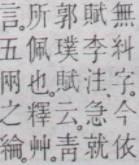 無糾字。今依
賦李注。急就
郭璞賦云。青
所佩也。釋艸。
言。五兩之綸